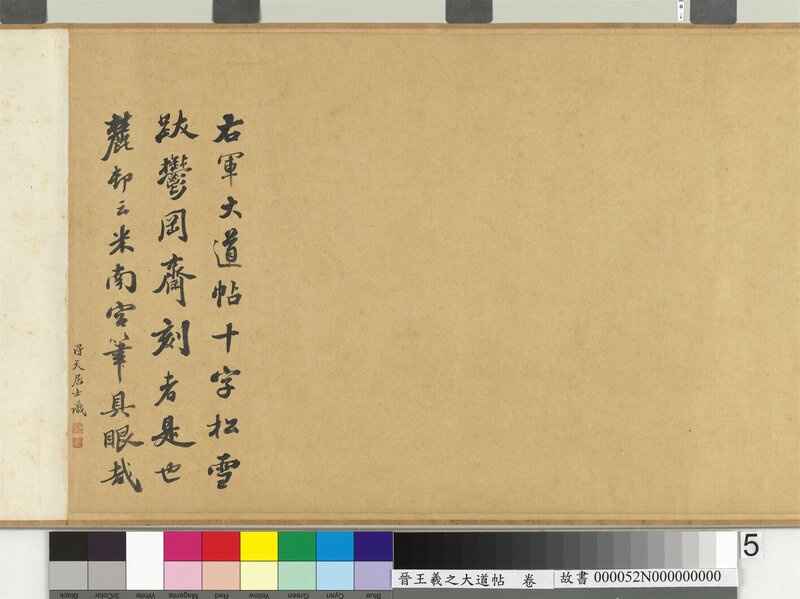 右軍大道帖十字松雪
跋鬱岡齋刻者是也
麓邨云米南宮筆具眼哉
得天居士識
5
晉王羲之大道帖 卷
故書 000052N000000000
Black
3/Color
White
Magenta
Red
Yellow
Green
Cyan
Blue